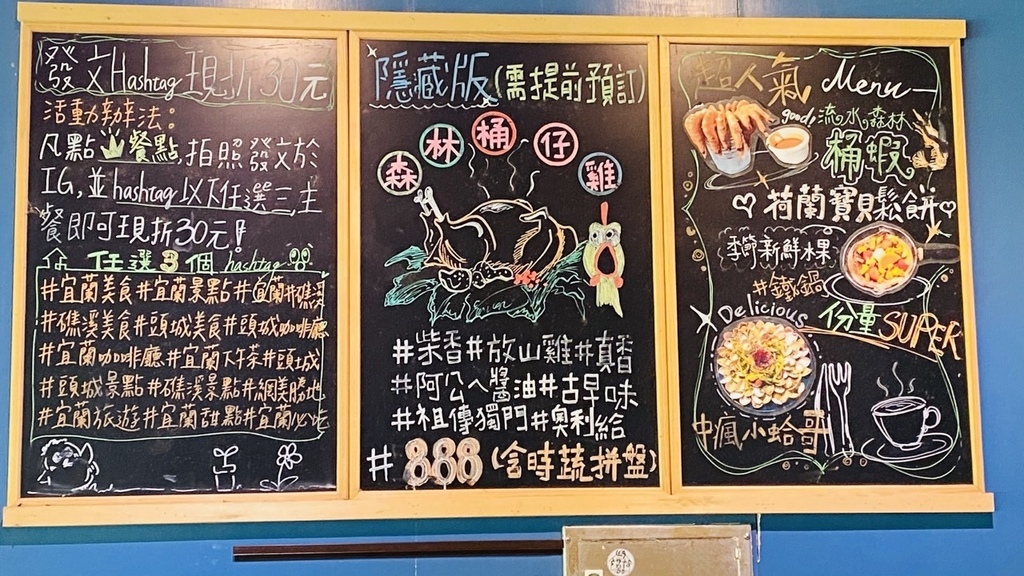 發文Hashtag現折30元
活動辦法：
凡點餐點拍照發文於
IG,並hashtag以下任選三主
餐即可現折30元!
任選3個hashtag
#宜蘭美食#宜蘭景點#宜蘭#礁溪
#礁溪美食#頭城美食#頭城咖啡廳
#宜蘭咖啡廳#宜蘭下午茶#頭城
#頭城景點#礁溪景點#網美勝地
#宜蘭旅遊#宜蘭甜點#宜蘭必吃
隱藏版(需提前預訂)
森林桶仔雞
#柴香#放山雞#真香
#阿公ㄟ醬油#古早味
#祖傳獨門#奧利給
#888(含時蔬拼盤)
超人氣 Menu
good! 流水森林
桶蝦
荷蘭寶貝鬆餅
季節新鮮水果
#鐵鍋
Delicious 份量SUPER
中瘋小蛤哥